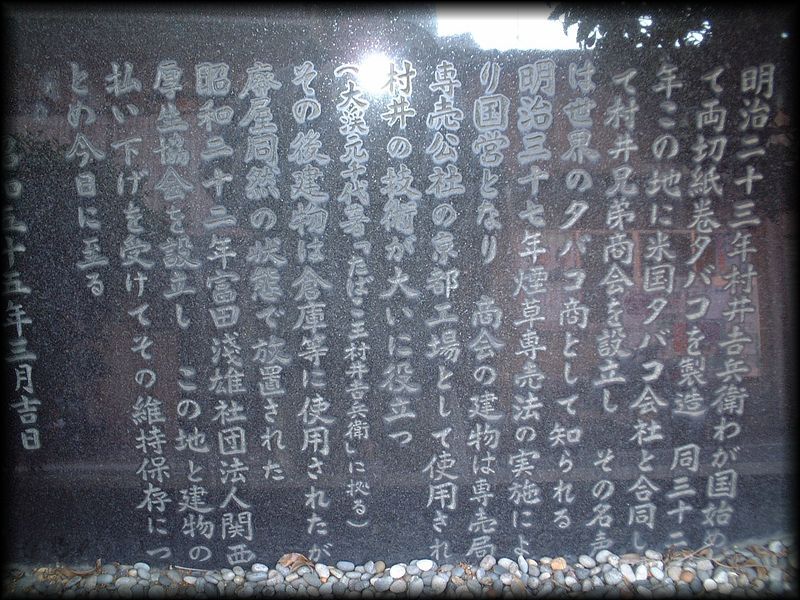 明治二十三年村井吉兵衛わが国始め
て両切紙巻タバコを製造　同三十二
年この地に米国タバコ会社と合同し
て村井兄弟商会を設立し　その名声
は世界のタバコ商として知られる
明治三十七年煙草専売法の実施によ
り国営となり　商会の建物は専売局
専売公社の京都工場として使用され
村井の技術が大いに役立つ
（大渓元千代著「たばこ王村井吉兵衛」に拠る）
その後建物は倉庫等に使用されたが
廃屋同然の状態で放置された
昭和二十二年富田浅雄社団法人関西
厚生協会を設立し　この地と建物の
払い下げを受けてその維持保存につ
とめ今日に至る
昭和五十五年三月吉日